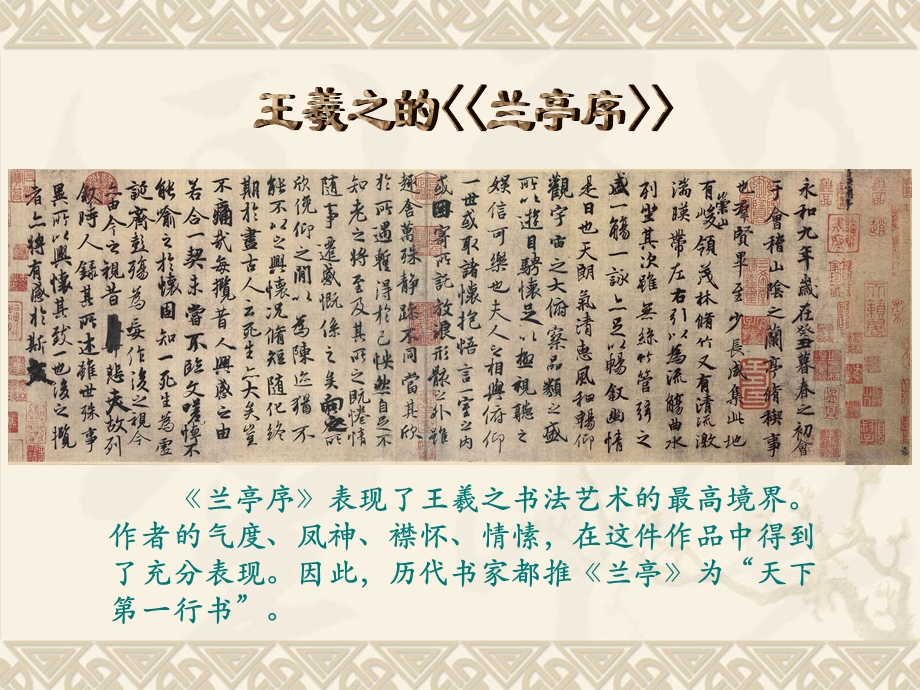 王羲之的《兰亭序》
永和九年歲在癸丑暮春之初會
于會稽山陰之蘭亭脩稧事
也羣賢畢至少長咸集此地
有崇山峻領茂林脩竹又有清流激
湍暎帶左右引以為流觴曲水
列坐其次雖無絲竹管弦之
盛一觴一詠亦足以暢敘幽情
是日也天朗氣清惠風和暢仰
觀宇宙之大俯察品類之盛
所以遊目騁懷足以極視聽之
娛信可樂也夫人之相與俯仰
一世或取諸懷抱悟言一室之內
或因寄所託放浪形骸之外雖
趣舍萬殊靜躁不同當其欣
於所遇暫得於己怏然自足不
知老之將至及其所之既惓情
隨事遷感慨係之矣向之所
欣俛仰之間以為陳迹猶不
能不以之興懷況脩短隨化終
期於盡古人云死生亦大矣豈
不痛哉每攬昔人興感之由
若合一契未嘗不臨文嗟悼不
能喻之於懷固知一死生為虛
誕齊彭殤為妄作後之視今
亦由今之視昔悲夫故列
敘時人錄其所述雖世殊事
異所以興懷其致一也後之攬
者亦將有感於斯文
《兰亭序》表现了王羲之书法艺术的最高境界。
作者的气度、凤神、襟怀、情愫，在这件作品中得到
了充分表现。因此，历代书家都推《兰亭》为“天下
第一行书”。